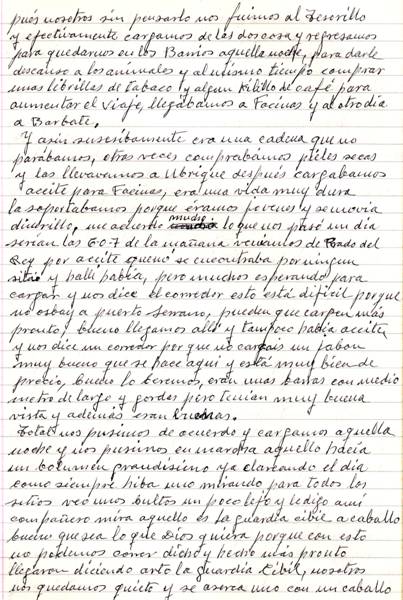 pués nosotros sin pensarlo nos fuimos al Tesorillo
y efectivamente cargamos de las dos cosa y regresamos
para quedarnos en los Barrios aquella noche, para darle
descanso a los animales y al mismo tiempo comprar
unas librillas de tabaco y algun kilillo de café para
aumentar el viaje, llegábamos a Facinas y al otro dia
a Barbate.
Y asin susesibamente era una cadena que no
parábamos, otras veces comprabámos pieles secas
y las llevavamos a Ubrique después cargabamos
aceite para Facinas, era una vida muy dura
la soportabamos porque éramos jovenes y se movia
dinerillo, me acuerdo mucho lo que nos pasó un dia
serian las 6 o 7 de la mañana veniamos de Prado del
Rey por aceite que no se encontraba por ningun
sitio y halli había, pero muchos esperando para
cargar y nos dice el corredor esto está dificil porque
no os bais a puerto Serrano, pueden que carguen más
pronto, bueno llegamos alli y tampoco había aceite
y nos dice un corredor porque no cargais un jabon
muy bueno que se hace aqui y está muy bien de
precio, bueno lo beremos, eran unas barras con medio
metro de largo y gordas pero tenian muy buena
vista y además eran buenas.
Total nos pusimos de acuerdo y cargamos aquella
noche y nos pusimos en marcha aquello hacía
un bolumen grandisimo ya clareando el día
como siempre hiba uno mirando para todos los
sitios veo unos bultos un poco lejo y le digo a mi
compañero mira aquello es la guardia cibil a caballo
bueno que sea lo que Dios quiera porque con esto
no podemos correr dicho y hecho más pronto
llegaron diciendo arto la Guardia Cibil, nosotros
nos quedamos quieto y se aserca uno con un caballo